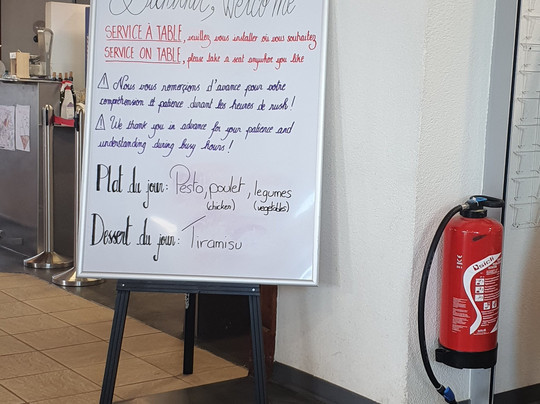 Bienvenue, Welcome
SERVICE À TABLE, veuillez vous installer où vous souhaitez
SERVICE ON TABLE, please take a seat anywhere you like
Nous vous remerçions d'avance pour votre
compréhension et patience durant les heures de rush!
We thank you in advance for your patience and
understanding during busy hours!
Plat du jour: Pesto, poulet, legumes
(chicken) (vegetables)
Dessert du jour: Tiramisu